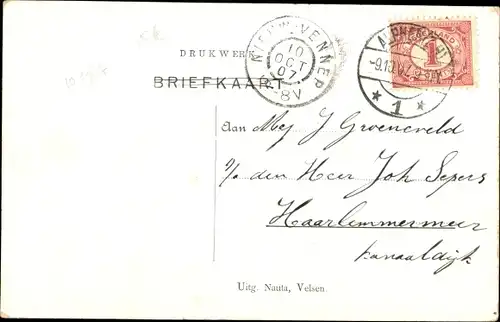 DRUKWERK
BRIEFKAART
NIEUW-VENNEP
10
OCT
07
8V
NEDERLAND
1
1
Aan Mej J Groeneveld
p/a den Heer Joh Sepers
Haarlemmermeer
kanaaldijk
Uitg. Nauta, Velsen